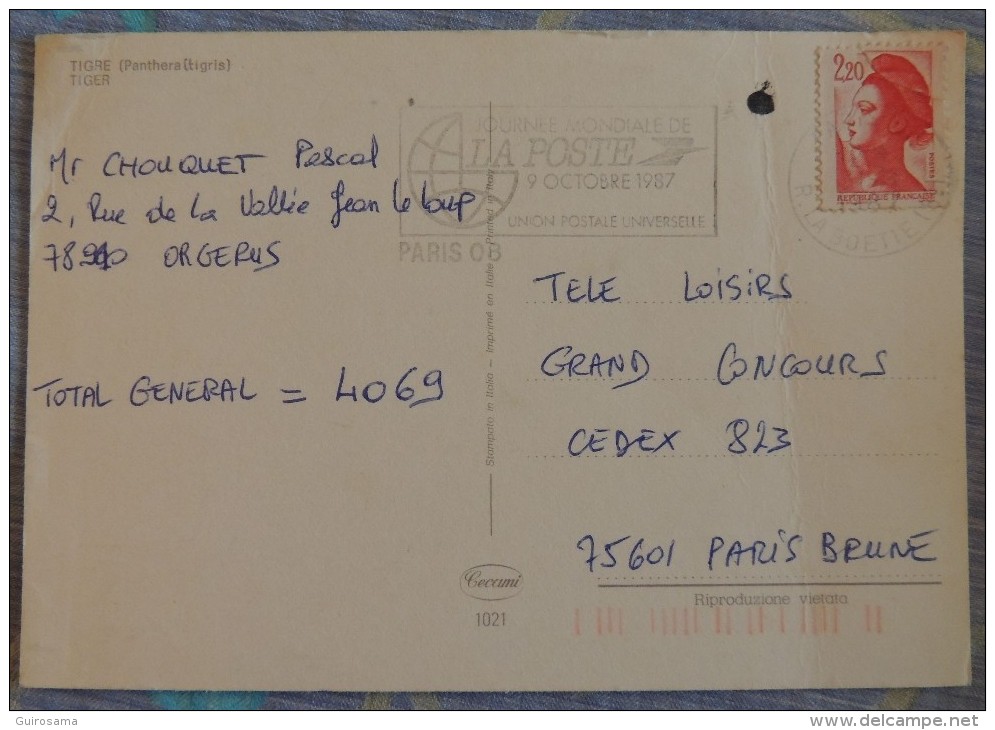 TIGRE (Panthera tigris)
TIGER
Mr CHOUQUET Pascal
2, Rue de la Vallée Jean le loup
78910 ORGERUS
TOTAL GENERAL = 4069
JOURNÉE MONDIALE DE
LA POSTE
9 OCTOBRE 1987
UNION POSTALE UNIVERSELLE
PARIS 08
2,20
POSTES
REPUBLIQUE FRANÇAISE
R. LA BOETIE
Stampato in Italia - Imprimé en Italie - Printed in Italy
TELE LOISIRS
GRAND CONCOURS
CEDEX 823
75601 PARIS BRUNE
Cecami
1021
Riproduzione vietata
Guirosama
delcampe.net